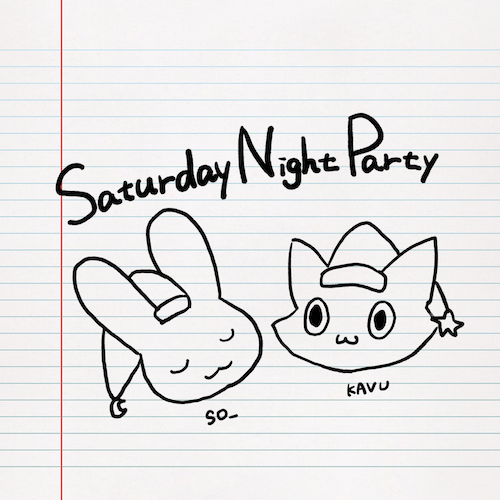 Saturday Night Party
SO_
KAVU